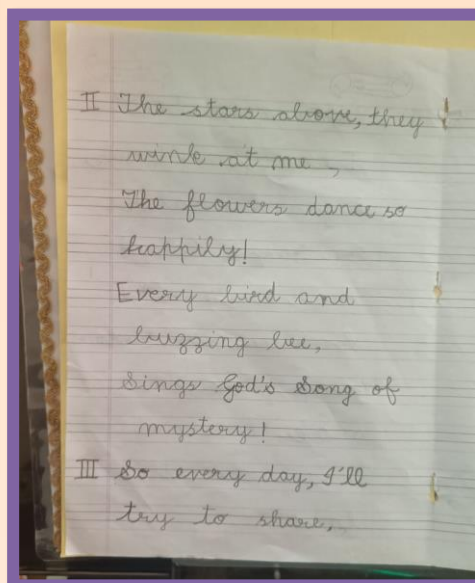 II The stars above, they
wink at me,
The flowers dance so
happily!
Every bird and
buzzing bee,
Sings God's Song of
mystery!
III So every day, I'll
try to share,